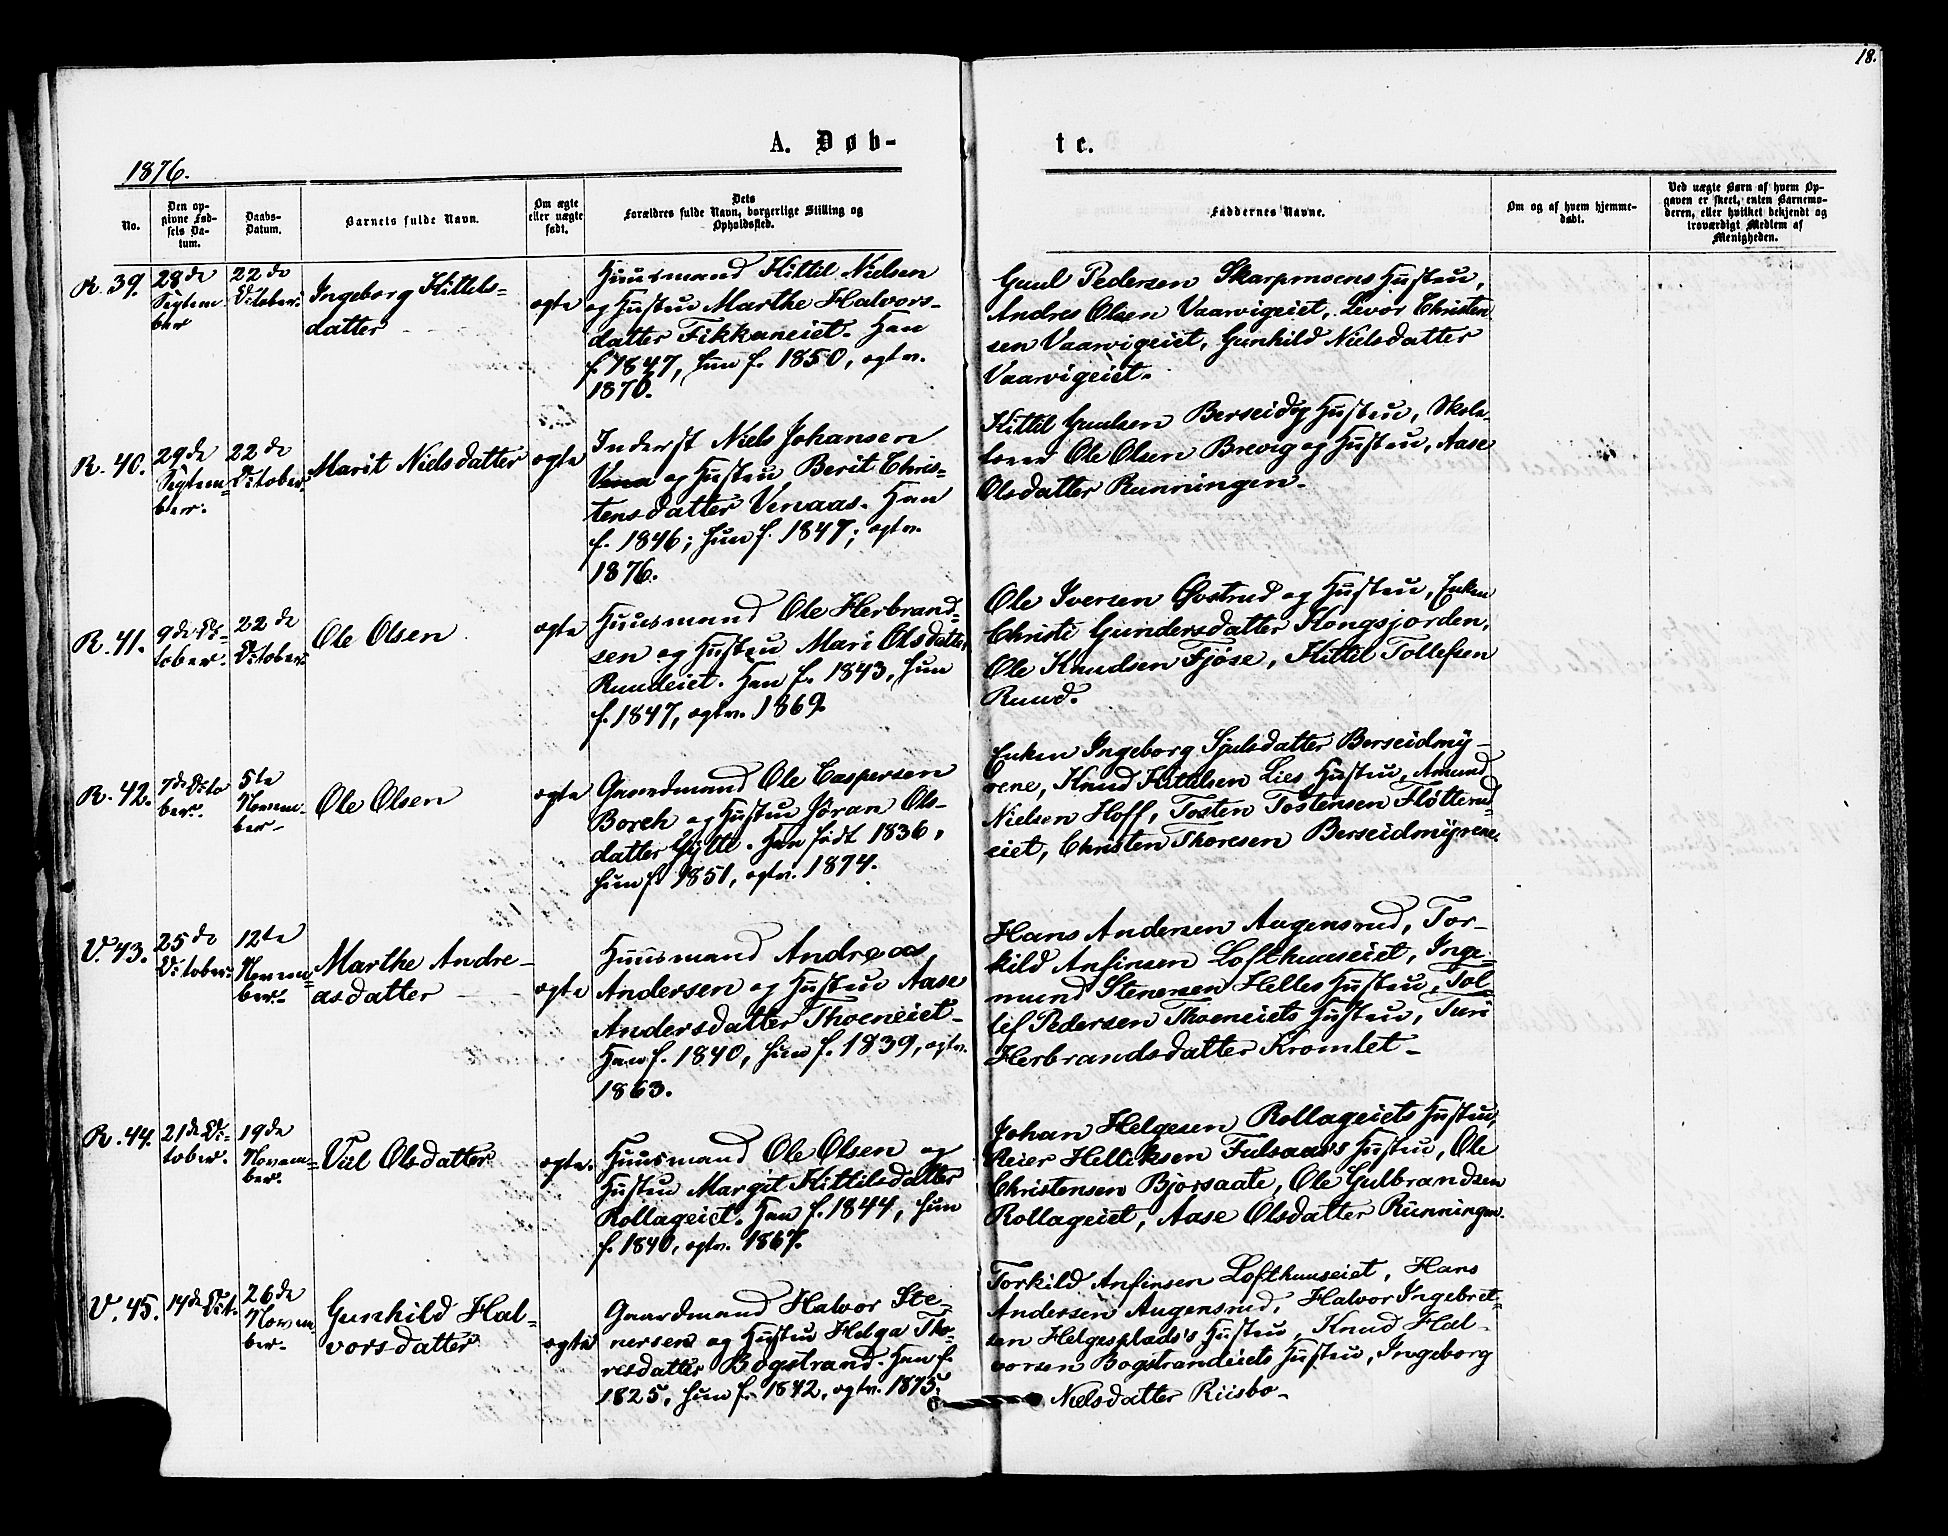 18.
A. Døb-
te.
1876.
No.
Den op-
givne Fød-
sels Da-
tum.
Daabs-
Datum.
Barnets fulde Navn.
Om ægte
eller uægte
født.
Dets
Forældres fulde Navn, borgerlige Stilling og
Opholdssted.
Faddernes Navne.
Om og af hvem hjemme-
døbt.
Ved uægte Børn af hvem Op-
gaven er skeet, enten Barnemo-
deren, eller hvilket bekjendt og
troværdigt Medlem af
Menigheden.
R. 39.
28de
Septem
ber
22de
October.
Ingeborg Kittils-
datter
ægte
Huusmand Kittil Nielsen
og Hustru Marthe Halvors-
datter Fikkaneiet. Han
f. 1847, hun f. 1850, ægtv.
1870.
Guul Pedersen Skarpmoens Hustru,
Andres Olsen Vaarvigeiet, Levor Christen
sen Vaarvigeiet, Gunhild Nielsdatter
Vaarvigeiet.
R. 40.
29de
Septem-
ber.
22de
October.
Marit Nielsdatter
ægte
Inderst Niels Johansen
Vena og Hustru Berit Chris-
tensdatter Venaas. Han
f. 1846; hun f. 1847; ægtv.
1876.
Kittil Guulsen Berseidog Hustru, Skole-
lærer Ole Olsen Brevig og Hustru, Aase
Olsdatter Runningen.
R. 41.
9de Oc-
tober.
22de
October.
Ole Olsen
ægte
Huusmand Ole Herbrand-
sen og Hustru Mari Olsdatter
Ruudeiet. Han f. 1843, hun
f. 1847, ægtv. 1869.
Ole Iversen Øvstrud og Hustru, Enken
Christi Gundersdatter Kongsjorden,
Ole Knudsen Fjøse, Kittil Tollefsen
Ruud.
R. 42.
7de Octo
ber.
5te
Novem-
ber.
Ole Olsen
ægte
Gaardmand Ole Caspersen
Borch og Hustru Jöran Ols-
datter Gytte. Han födt 1836,
hun f. 1851, ægtv. 1874.
Enken Ingeborg Sjulsdatter Berseidmy-
rene, Knud Kittilsen Lies Hustru, Amund
Nielsen Hoff, Tosten Tostensen Fløtterud
eiet, Christen Thoresen Berseidmyrene.
V. 43.
25de
October.
12te
Novem-
ber.
Marthe Andre-
asdatter
ægte
Huusmand Andreas
Andersen og Hustru Aase
Andersdatter Thoeneiet.
Han f. 1840, hun f. 1839, ægtv.
1863.
Hans Andersen Augensrud, Tor-
kild Anfinsen Lofthuuseiet, Inge-
mund Stenersen Helles Hustru, Tol-
lef Pedersen Thoeneiets Hustru, Turi
Herbrandsdatter Kromlet.
R. 44.
21de Oc-
tober.
19de
Novem-
ber.
Viel Olsdatter
ægte.
Huusmand Ole Olsen og
Hustru Margit Kittilsdatter
Rollageiet. Han f. 1844, hun
f. 1840, ægtv. 1867.
Johan Helgesen Rollageiets Hustru,
Reier Helliksen Fulsaas's Hustru, Ole
Christensen Bjorsaate, Ole Gulbrandsen
Rollageiet, Aase Olsdatter Runningen.
V. 45.
14de Oct.
26de
Novem-
ber.
Gunhild Hal-
vorsdatter
ægte
Gaardmand Halvor Ste-
nersen og Hustru Helga Tho-
resdatter Bogstrand. Han f.
1825, hun f. 1842, ægtv. 1875.
Torkild Anfinsen Lofthuuseiet, Hans
Andersen Augensrud, Halvor Ingebret-
sen Helgesplads's Hustru, Knud Hal-
vorsen Bogstrandeiets Hustru, Ingeborg
Nielsdatter Riisbo.